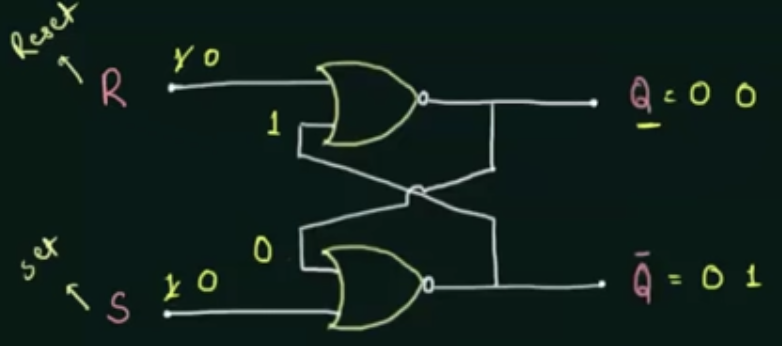 Reset
R 1 0
1
Q = 0 0
0
Set
S 1 0
Q̄ = 0 1